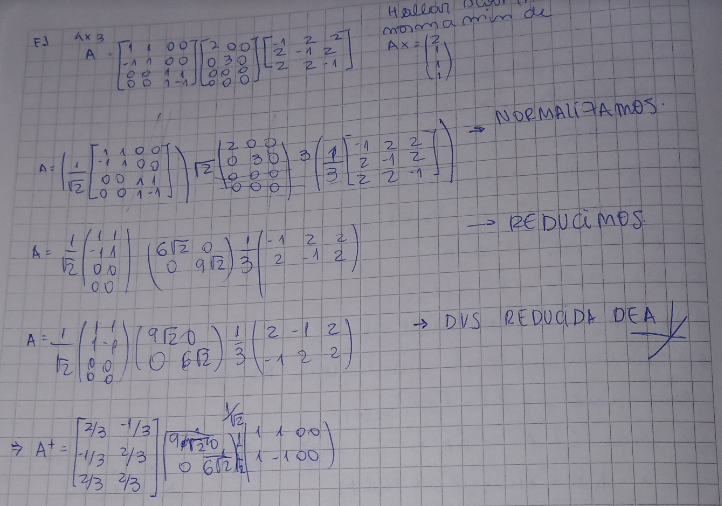 EJ 4x3
A = [1 1 0 0; -1 1 0 0; 0 0 1 1; 0 0 1 -1] [2 0 0; 0 3 0; 0 0 0; 0 0 0] [-1 2 2; 2 -1 2; 2 2 -1]
Hallar
norma min de
Ax = (2 1 1 1)
A = (1/√2 [1 1 0 0; -1 1 0 0; 0 0 1 1; 0 0 1 -1]) √2 (2 0 0; 0 3 0; 0 0 0; 0 0 0) 3 (1/3 [-1 2 2; 2 -1 2; 2 2 -1]) → NORMALIZAMOS.
A = 1/√2 (1 1; -1 1; 0 0; 0 0) (6√2 0; 0 9√2) 1/3 (-1 2 2; 2 -1 2) → REDUCIMOS.
A = 1/√2 (1 1; 1 -1; 0 0; 0 0) (9√2 0; 0 6√2) 1/3 (2 -1 2; -1 2 2) → DVS REDUCIDA DE A
⇒ A+ = [2/3 -1/3; -1/3 2/3; 2/3 2/3] (9√2 0; 0 6√2) 1/√2 (1 1 0 0; 1 -1 0 0)